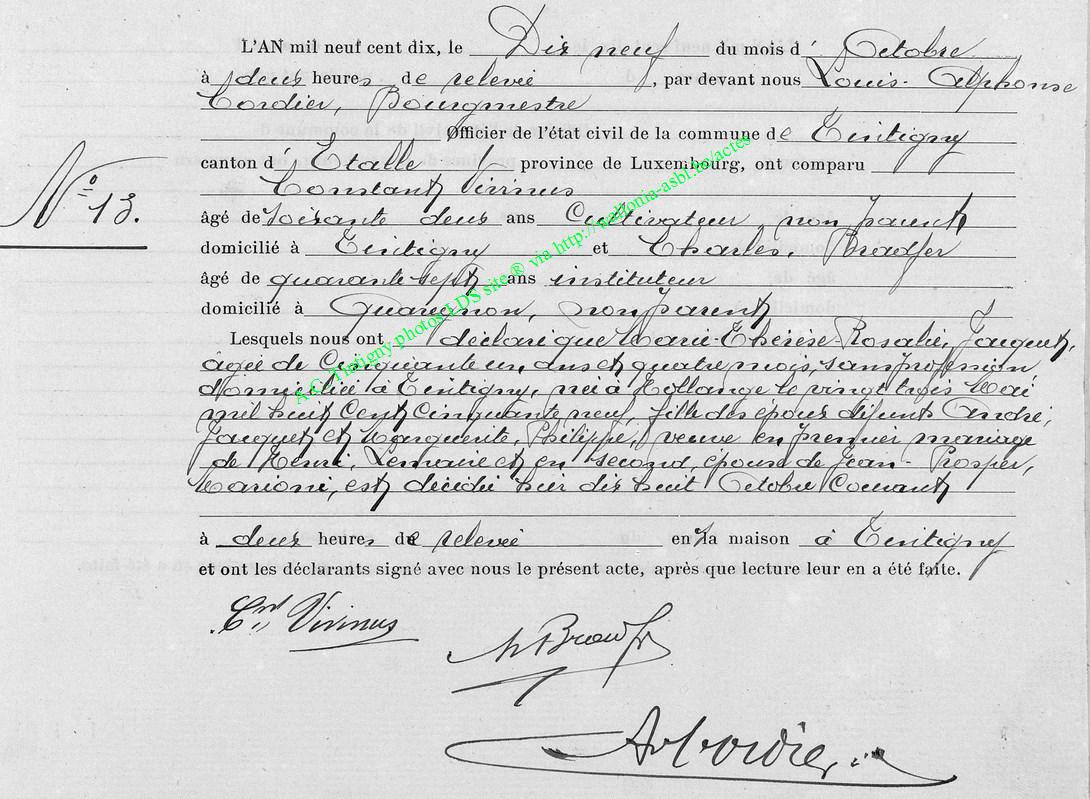 L'AN mil neuf cent dix, le Dix neuf du mois d' Octobre
à deux heures de relevée, par devant nous Louis-Alphonse
Cordier, Bourgmestre
Officier de l'état civil de la commune de Tintigny
canton d' Etalle province de Luxembourg, ont comparu
Constant Virinus
N° 13.
âgé de soixante deux ans Cultivateur, non parent
domicilié à Tintigny et Charles,
âgé de quarante-sept ans instituteur
domicilié à Quaregnon, non parent
Lesquels nous ont déclaré que Marie-Thérèse-Rosalie, Jacquet,
âgée de Cinquante un ans et quatre mois, sans profession
domiciliée à Tintigny, née à Hollange le vingt trois Mai
mil huit Cent Cinquante neuf, fille des époux défunts André,
Jacquet et Marguerite, Philippe, veuve en premier mariage
de Henri, Lemaire et en second, épouse de Jean-Prosper,
Marioni, est décédée hier dix huit Octobre Courant
à deux heures de relevée en la maison à Tintigny
et ont les déclarants signé avec nous le présent acte, après que lecture leur en a été faite.
Cnt Virinus
A Cordier
A.C. Tintigny photos LDS site ® via http://wallonia-asbl.be/actes